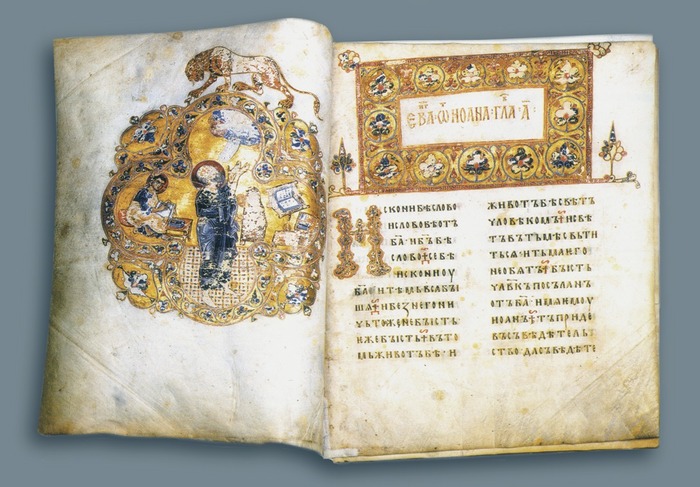 ЕВА҃ Ѿ ИОАНА · ГЛА҃ А҃ ·
ИСКОНИ БѢ СЛОВО
И СЛОВО БѢ ОТЪ
БА҃ · И БЪ҃ БѢ
СЛОВО · СЕ БѢ
ИСКОНИ ОУ
БА҃ · И ТѢМЬ ВЬСА БЫ
ШѦ · И БЕЗ НЕГО НИ
ЧЬТОЖЕ НЕ БЫСТЬ ·
ѤЖЕ БЫСТЬ · ВЪ ТО
МЬ ЖИВОТЪ БѢ · И
ЖИВОТЪ БѢ СВѢТЪ
ЧЛОВѢКОМЪ · И СВѢ
ТЪ ВЪ ТЬМѢ СВЬТИ
ТЬ СѦ · И ТЬМА ѤГО
НЕ ОБѦТЪ · БЫСТЬ
ЧЛВ҃КЪ ПОСЪЛАНЪ
ОТЪ БА҃ · ИМѦ ѤМОУ
ИОАНЪ · ТЪ ПРИДЕ
ВЪ СЪВѢДѢТЕЛЬ
СТВО · ДА СЪВѢДѢТЕ